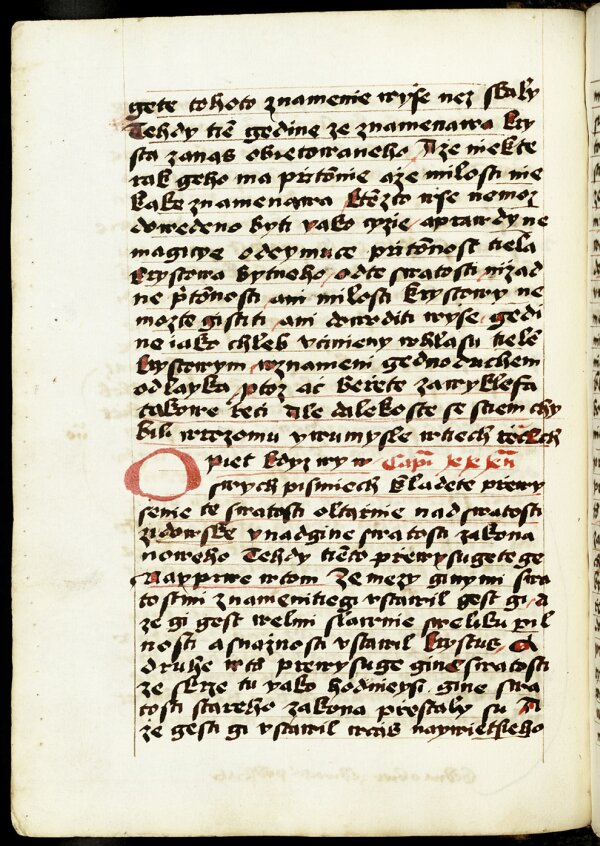 gete tohoto znamenie wyſe nez ſkaly
Tehdy tiē gedine ze znamenawa kry
ſta zanas obietowaneho A ze niekte
rak geho ma pritōnie aze miloſti nie
kake znamenawa ktōzto wſe nemoz
dowedeno byti yako cyzie aprawdy ne
magicye odeymuce pritōnoſt tiela
kryſtowa bytneho odte ſwatoſti nizad
ne prītōnoſti ani miloſti kryſtowy ne
mozte giſtiti ani dowoditi wyſe gedi
ne iako chleb vcinieny whlaſu tiele
kryſtowym wznameni gednoduchem
odlayka ptoz ac berete zawykleſa
takowe reci Ale dalekoſte ſe ſtiem chy
bili wrozomu ywumyſle wtiech rēckch
Opiet kdyz wy w Capi xxx
ſwych piſmiech kladete prewy
ſenie te ſwatoſti oltarnie nad ſwatoſti
zidowſke ynadgine ſwatoſti zakona
noweho Tehdy tiēto prewyſugete ge
Nayprwe wtom Ze mezy ginymi ſwa
toſtmi znamenitiegi vſtawil geſt gi A
ze gi geſt welmi ſlawnie ſweliku pil
noſti aſnaznoſti vſtawil kryſtus A
druhe wtō prewyſuge gine ſwatoſti
ze ſkrze tu yako hodnieyſi gine ſwa
toſti ſtareho zakona preſtaly ſu A
ze geſti gi vſtawil wcas naywietſieho